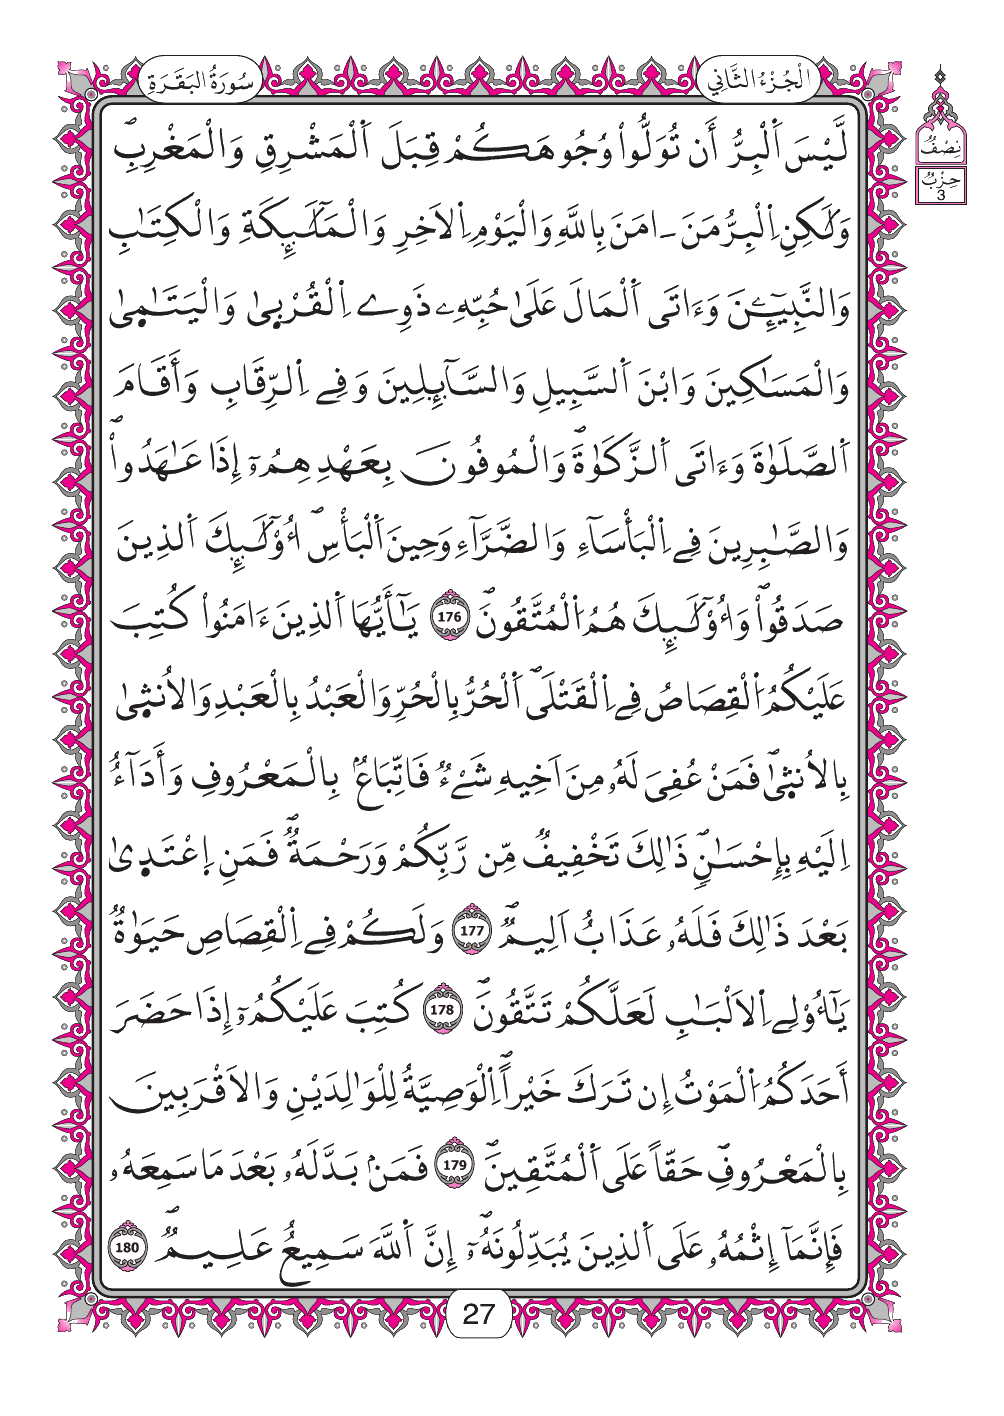 سُورَةُ البَقَرَةِ
الْجُزْءُ الثَّانِي
نِصْفُ
حِزْبٌ
3
لَّيْسَ اَلْبِرُّ أَن تُوَلُّواْ وُجُوهَكُمْ قِبَلَ اَلْمَشْرِقِ وَالْمَغْرِبِۖ
وَلَٰكِنِ اِلْبِرُّ مَنَ ـ امَنَ بِاللَّهِ وَالْيَوْمِ اِلاَخِرِ وَالْمَلَٰٓئِكَةِ وَالْكِتَٰبِ
وَالنَّبِيٓـِٕۧنَ وَءَاتَى اَلْمَالَ عَلَىٰ حُبِّهِۦ ذَوِے اِلْقُرْب۪ىٰ وَالْيَتَٰم۪ىٰ
وَالْمَسَٰكِينَ وَابْنَ اَلسَّبِيلِ وَالسَّآئِلِينَ وَفِے اِلرِّقَابِ وَأَقَامَ
اَلصَّلَوٰةَ وَءَاتَى اَلزَّكَوٰةَۖ وَالْمُوفُونَ بِعَهْدِهِمُۥٓ إِذَا عَٰهَدُواْۖ
وَالصَّٰبِرِينَ فِے اِلْبَأْسَآءِ وَالضَّرَّآءِ وَحِينَ اَلْبَأْسِۖ أُوْلَٰٓئِكَ اَلذِينَ
صَدَقُواْۖ وَأُوْلَٰٓئِكَ هُمُ اُلْمُتَّقُونَۖ 176 يَٰٓأَيُّهَا اَلذِينَ ءَامَنُواْ كُتِبَ
عَلَيْكُمُ اُلْقِصَاصُ فِے اِلْقَتْلَىۖ اَلْحُرُّ بِالْحُرِّ وَالْعَبْدُ بِالْعَبْدِ وَالُانث۪ىٰ
بِالُانث۪ىٰۖ فَمَنْ عُفِيَ لَهُۥ مِنَ اَخِيهِ شَےْءٞ فَاتِّبَاعُۢ بِالْمَعْرُوفِ وَأَدَآءٌ
اِلَيْهِ بِإِحْسَٰنٖۖ ذَٰلِكَ تَخْفِيفٞ مِّن رَّبِّكُمْ وَرَحْمَةٞۖ فَمَنِ اِعْتَد۪ىٰ
بَعْدَ ذَٰلِكَ فَلَهُۥ عَذَابٌ اَلِيمٞۖ 177 وَلَكُمْ فِے اِلْقِصَاصِ حَيَوٰةٞ
يَٰٓأُوْلِے اِلَالْبَٰبِ لَعَلَّكُمْ تَتَّقُونَۖ 178 كُتِبَ عَلَيْكُمُۥٓ إِذَا حَضَرَ
أَحَدَكُمُ اُلْمَوْتُ إِن تَرَكَ خَيْراًۖ اِلْوَصِيَّةُ لِلْوَٰلِدَيْنِ وَالَاقْرَبِينَ
بِالْمَعْرُوفِۖ حَقّاً عَلَى اَلْمُتَّقِينَۖ 179 فَمَنۢ بَدَّلَهُۥ بَعْدَ مَا سَمِعَهُۥ
فَإِنَّمَآ إِثْمُهُۥ عَلَى اَلذِينَ يُبَدِّلُونَهُۥٓۖ إِنَّ اَللَّهَ سَمِيعٌ عَلِيمٞۖ 180
27